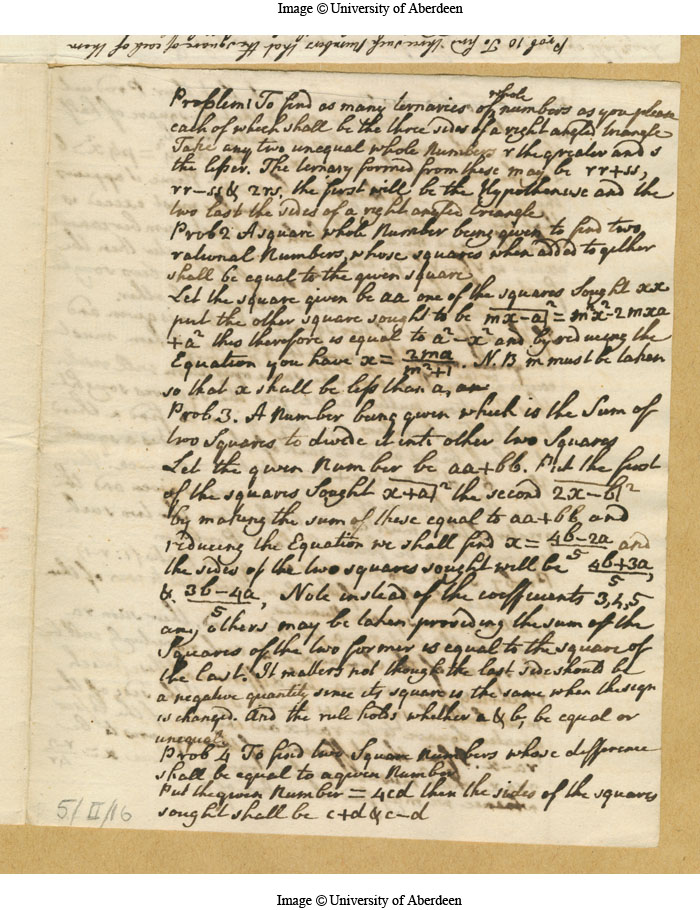 Image © University of Aberdeen
Prob 10 To find three such Numbers that the square of each of them
Problem 1 To find as many ternaries of whole numbers as you please
each of which shall be the three sides of a right angled triangle
Take any two unequal whole Numbers r the greater and s
the lesser. The ternary formed from these may be rr+ss,
rr-ss & 2rs, the first will be the Hypothenuse and the
two last the sides of a right angled triangle
Prob 2 A square whole Number being given to find two
rational Numbers, whose squares when added together
shall be equal to the given square
Let the square given be aa one of the squares sought xx
put the other square sought to be mx-a|² = m²x²-2mxa
+a² this therefore is equal to a²-x² and by reducing the
Equation you have x = 2ma/m²+1. N.B m must be taken
so that x shall be less than a,
Prob 3. A Number being given which is the Sum of
two Squares to divide it into other two Squares
Let the given Number be aa+bb. Put the first
of the squares Sought x+a|² the second 2x-b|²
by making the sum of these equal to aa+bb, and
reducing the Equation we shall find x = 4b-2a/5 and
the sides of the two squares sought will be 4b+3a/5,
& 3b-4a/5, Note instead of the coefficients 3,4,5
any others may be taken providing the sum of the
Squares of the two former is equal to the square of
the last. It matters not though the last side should be
a negative quantity since its square is the same when the sign
is changed. And the rule holds whether a & b, be equal or
unequal
Prob 4 To find two Square Numbers whose difference
shall be equal to a given Number
Put the given Number = 4cd then the sides of the squares
sought shall be c+d & c-d
5/II/16
Image © University of Aberdeen